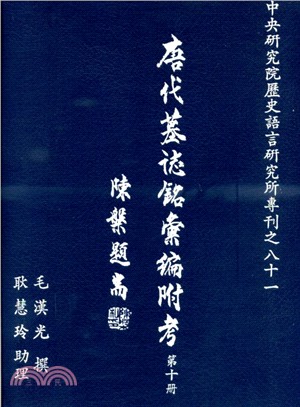 中央研究院歷史語言研究所專刊之八十一
唐代墓誌銘彙編附考
第十冊
陳槃題耑
毛漢光 撰
耿慧玲助理
三民網路書店